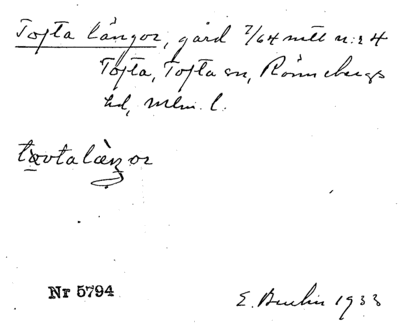 Tofta långor, gård 7/64 mtl n:r 4
Tofta, Tofta sn, Rönnebergs
hd, Mlm. l.
tɷvtalàŋor
Nr 5794
E. 1933